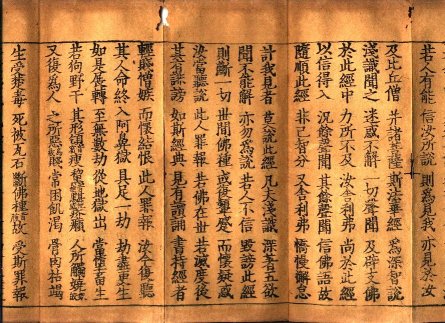 若人有能 信汝所說 則為見我 亦見於汝
及比丘僧 并諸菩薩 斯法華經 為深智說
淺識聞之 迷惑不解 一切聲聞 及辟支佛
於此經中 力所不及 汝舍利弗 尚於此經
以信得入 況餘聲聞 其餘聲聞 信佛語故
隨順此經 非己智分 又舍利弗 憍慢懈怠
計我見者 莫說此經 凡夫淺識 深著五欲
聞不能解 亦勿為說 若人不信 毀謗此經
則斷一切 世間佛種 或復顰蹙 而懷疑惑
汝當聽說 此人罪報 若佛在世 若滅度後
其有誹謗 如斯經典 見有讀誦 書持經者
輕賤憎嫉 而懷結恨 此人罪報 汝今復聽
其人命終 入阿鼻獄 具足一劫 劫盡更生
如是展轉 至無數劫 從地獄出 當墮畜生
若狗野干 其形 瘦 疥癩 人所觸嬈
又復為人 之所惡賤 常困飢渴 骨肉枯竭
生受楚毒 死被瓦石 斷佛種故 受斯罪報